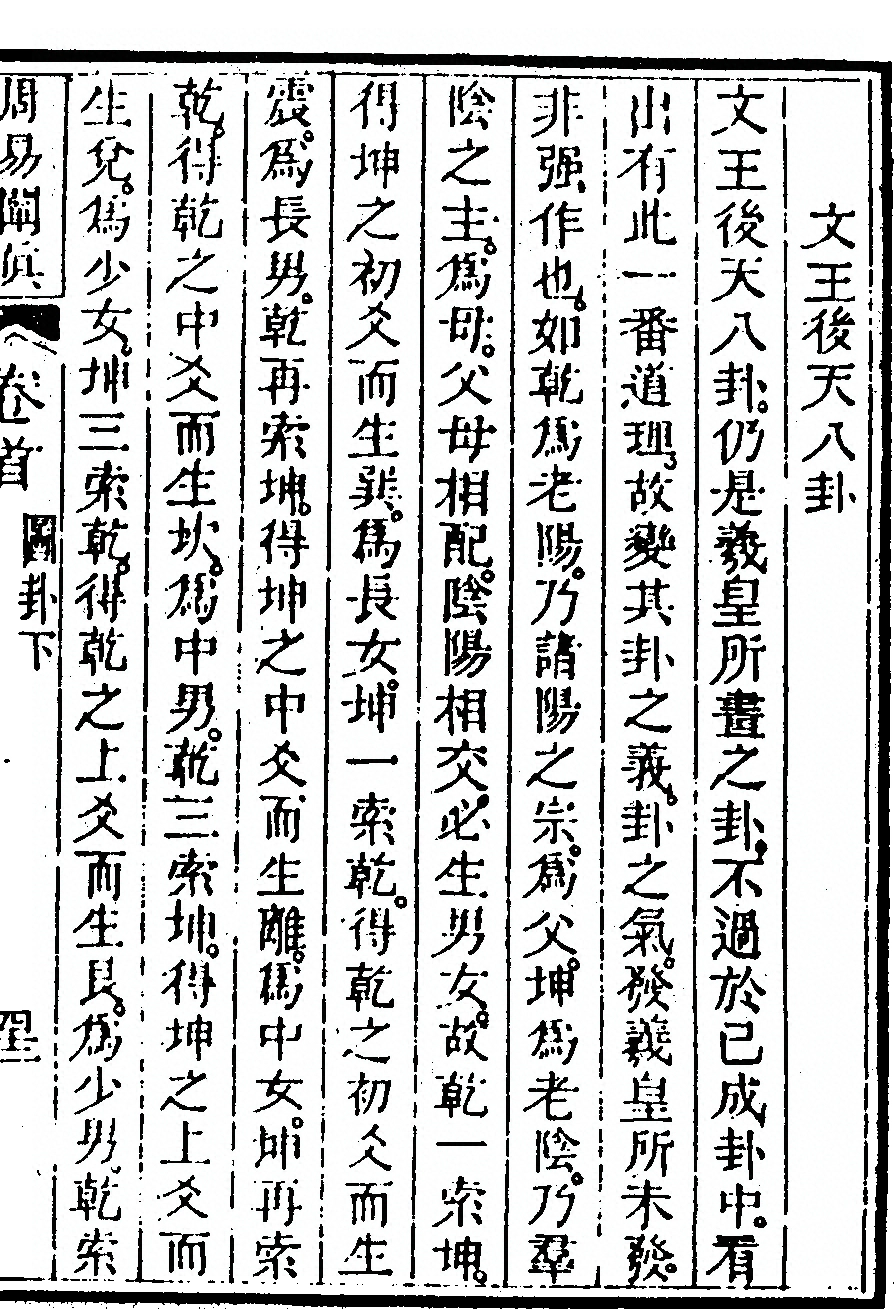 文王後天八卦
文王後天八卦。仍是羲皇所畫之卦。不過於已成卦中。看
出有此一番道理。故變其卦之義。卦之氣。發羲皇所未發。
非强作也。如乾爲老陽。乃諸陽之宗。爲父。坤爲老陰。乃羣
陰之主。爲母。父母相配。陰陽相交。必生男女。故乾一索坤。
得坤之初爻而生巽。爲長女。坤一索乾。得乾之初爻而生
震。爲長男。乾再索坤。得坤之中爻而生離。爲中女。坤再索
乾。得乾之中爻而生坎。爲中男。乾三索坤。得坤之上爻而
生兌。爲少女。坤三索乾。得乾之上爻而生艮。爲少男。乾索
周易闡眞
卷首
圖卦下